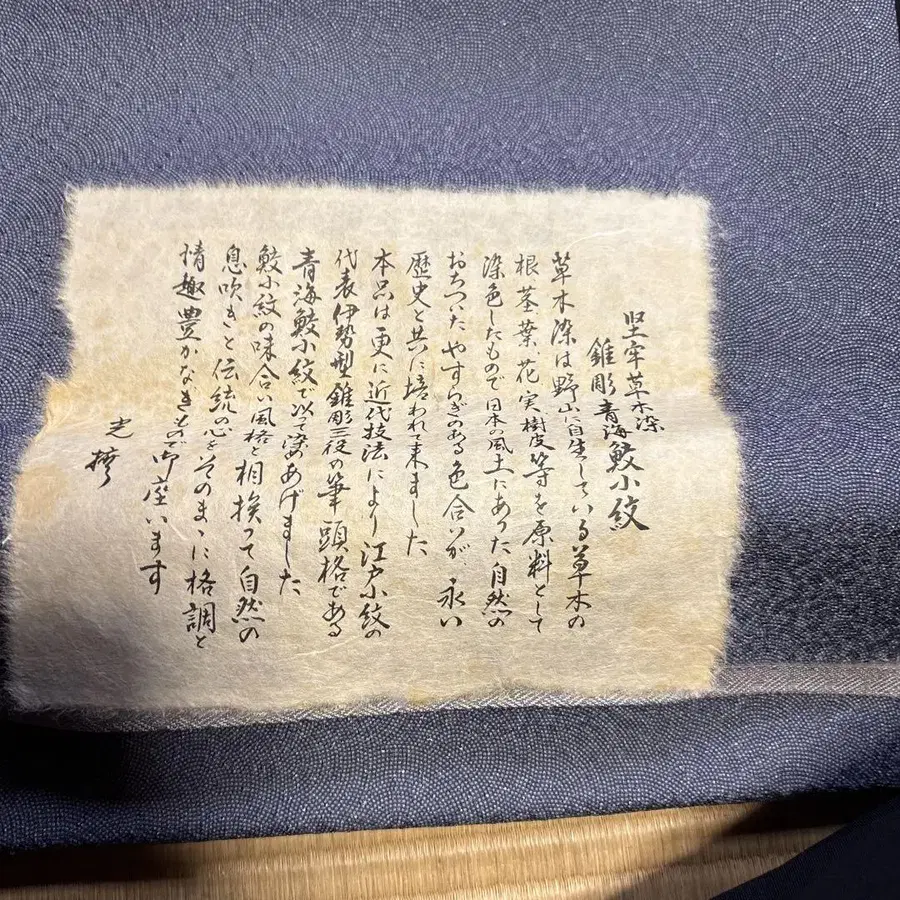 堅牢草木染
錐彫青海鮫小紋
草木染は野山に自生している草木の
根、茎、葉、花、実、樹皮等を原料として
染色したもので日本の風土にあった自然の
おちついたやすらぎのある色合いが、永い
歴史と共に培われて来ました
本品は更に近代技法により江戸小紋の
代表伊勢型錐彫三役の筆頭格である
青海鮫小紋で以て染めあげました
鮫小紋の味合い風格と相挨って自然の
息吹きと伝統の心をそのまゝに格調と
情趣豊かなきもので御座います